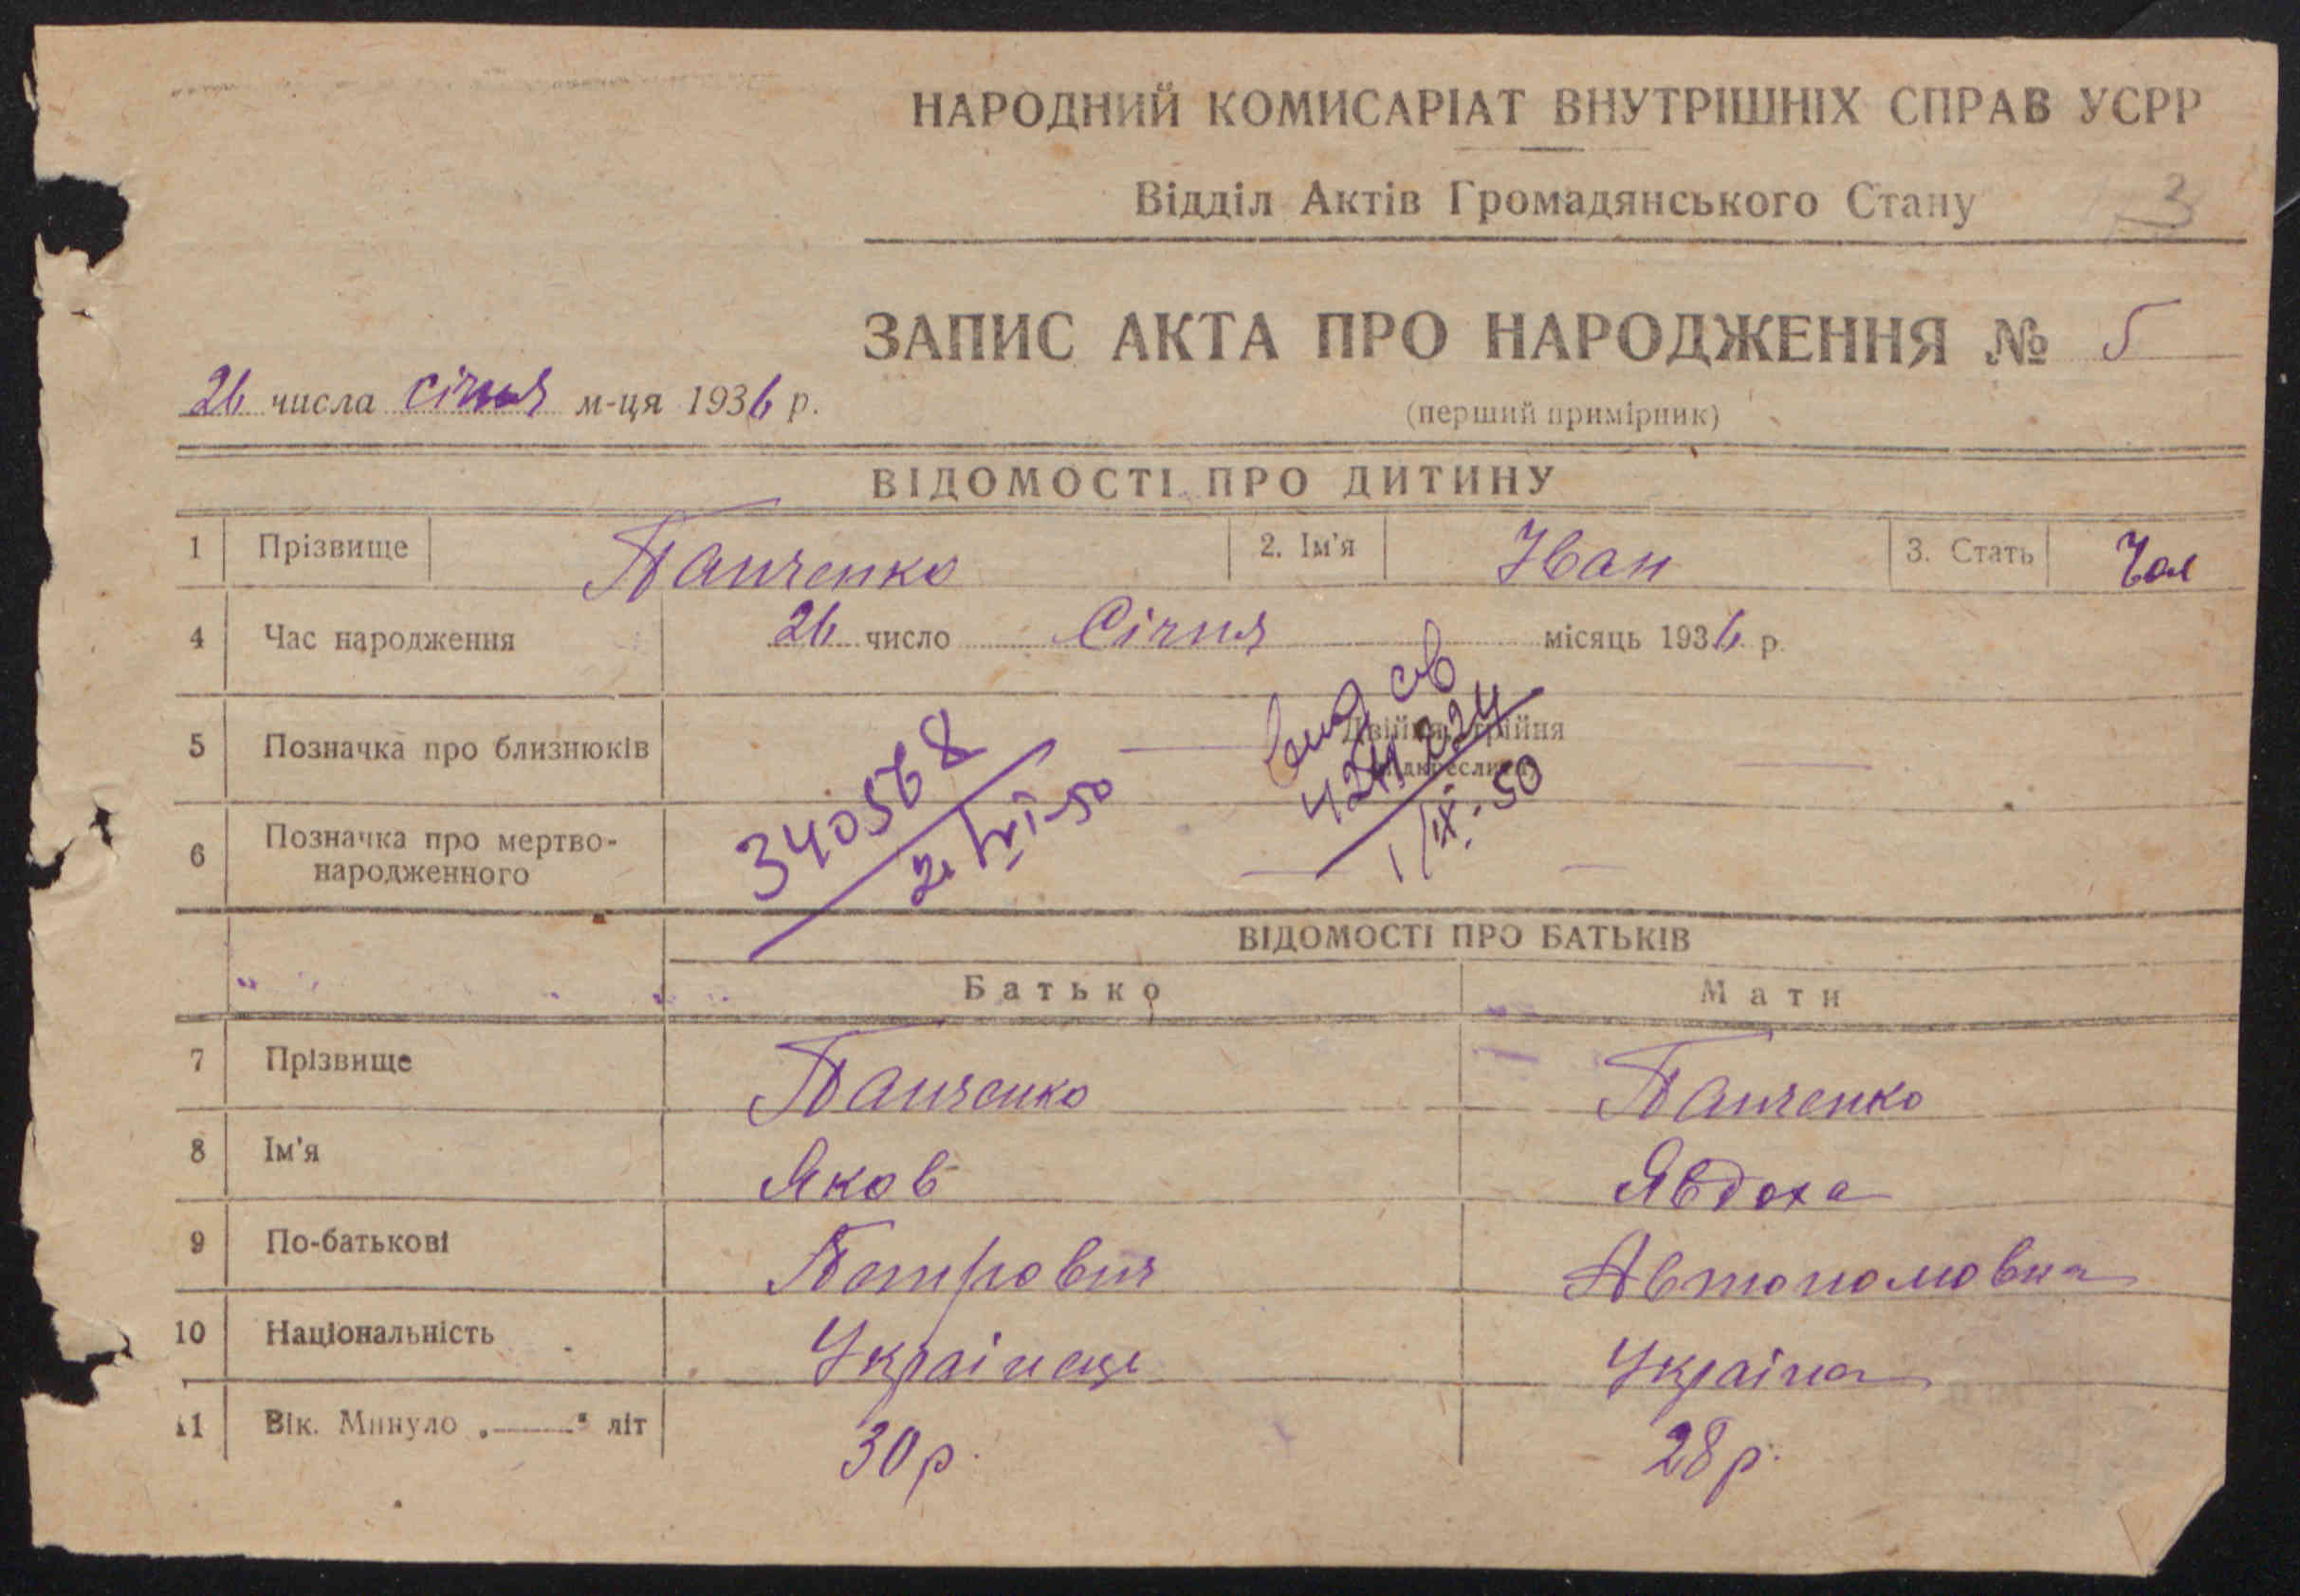 НАРОДНИЙ КОМИСАРІАТ ВНУТРІШНІХ СПРАВ УСРР
Відділ Актів Громадянського Стану
3
ЗАПИС АКТА ПРО НАРОДЖЕННЯ № 5
26 числа січня м-ця 1936 р.
(перший примірник)
ВІДОМОСТІ ПРО ДИТИНУ
1 Прізвище Панченко 2. Ім'я Іван 3. Стать Чол
4 Час народження 26 число Січня місяць 1936 р.
5 Позначка про близнюків Двійня, трійня
6 Позначка про мертво-
народженного
340568
50
1/IX-50
ВІДОМОСТІ ПРО БАТЬКІВ
Батько Мати
7 Прізвище Панченко Панченко
8 Ім'я Яков Явдоха
9 По-батькові Петрович Автономовна
10 Національність Українець Україна
11 Вік. Минуло „——" літ 30 р. 28 р.